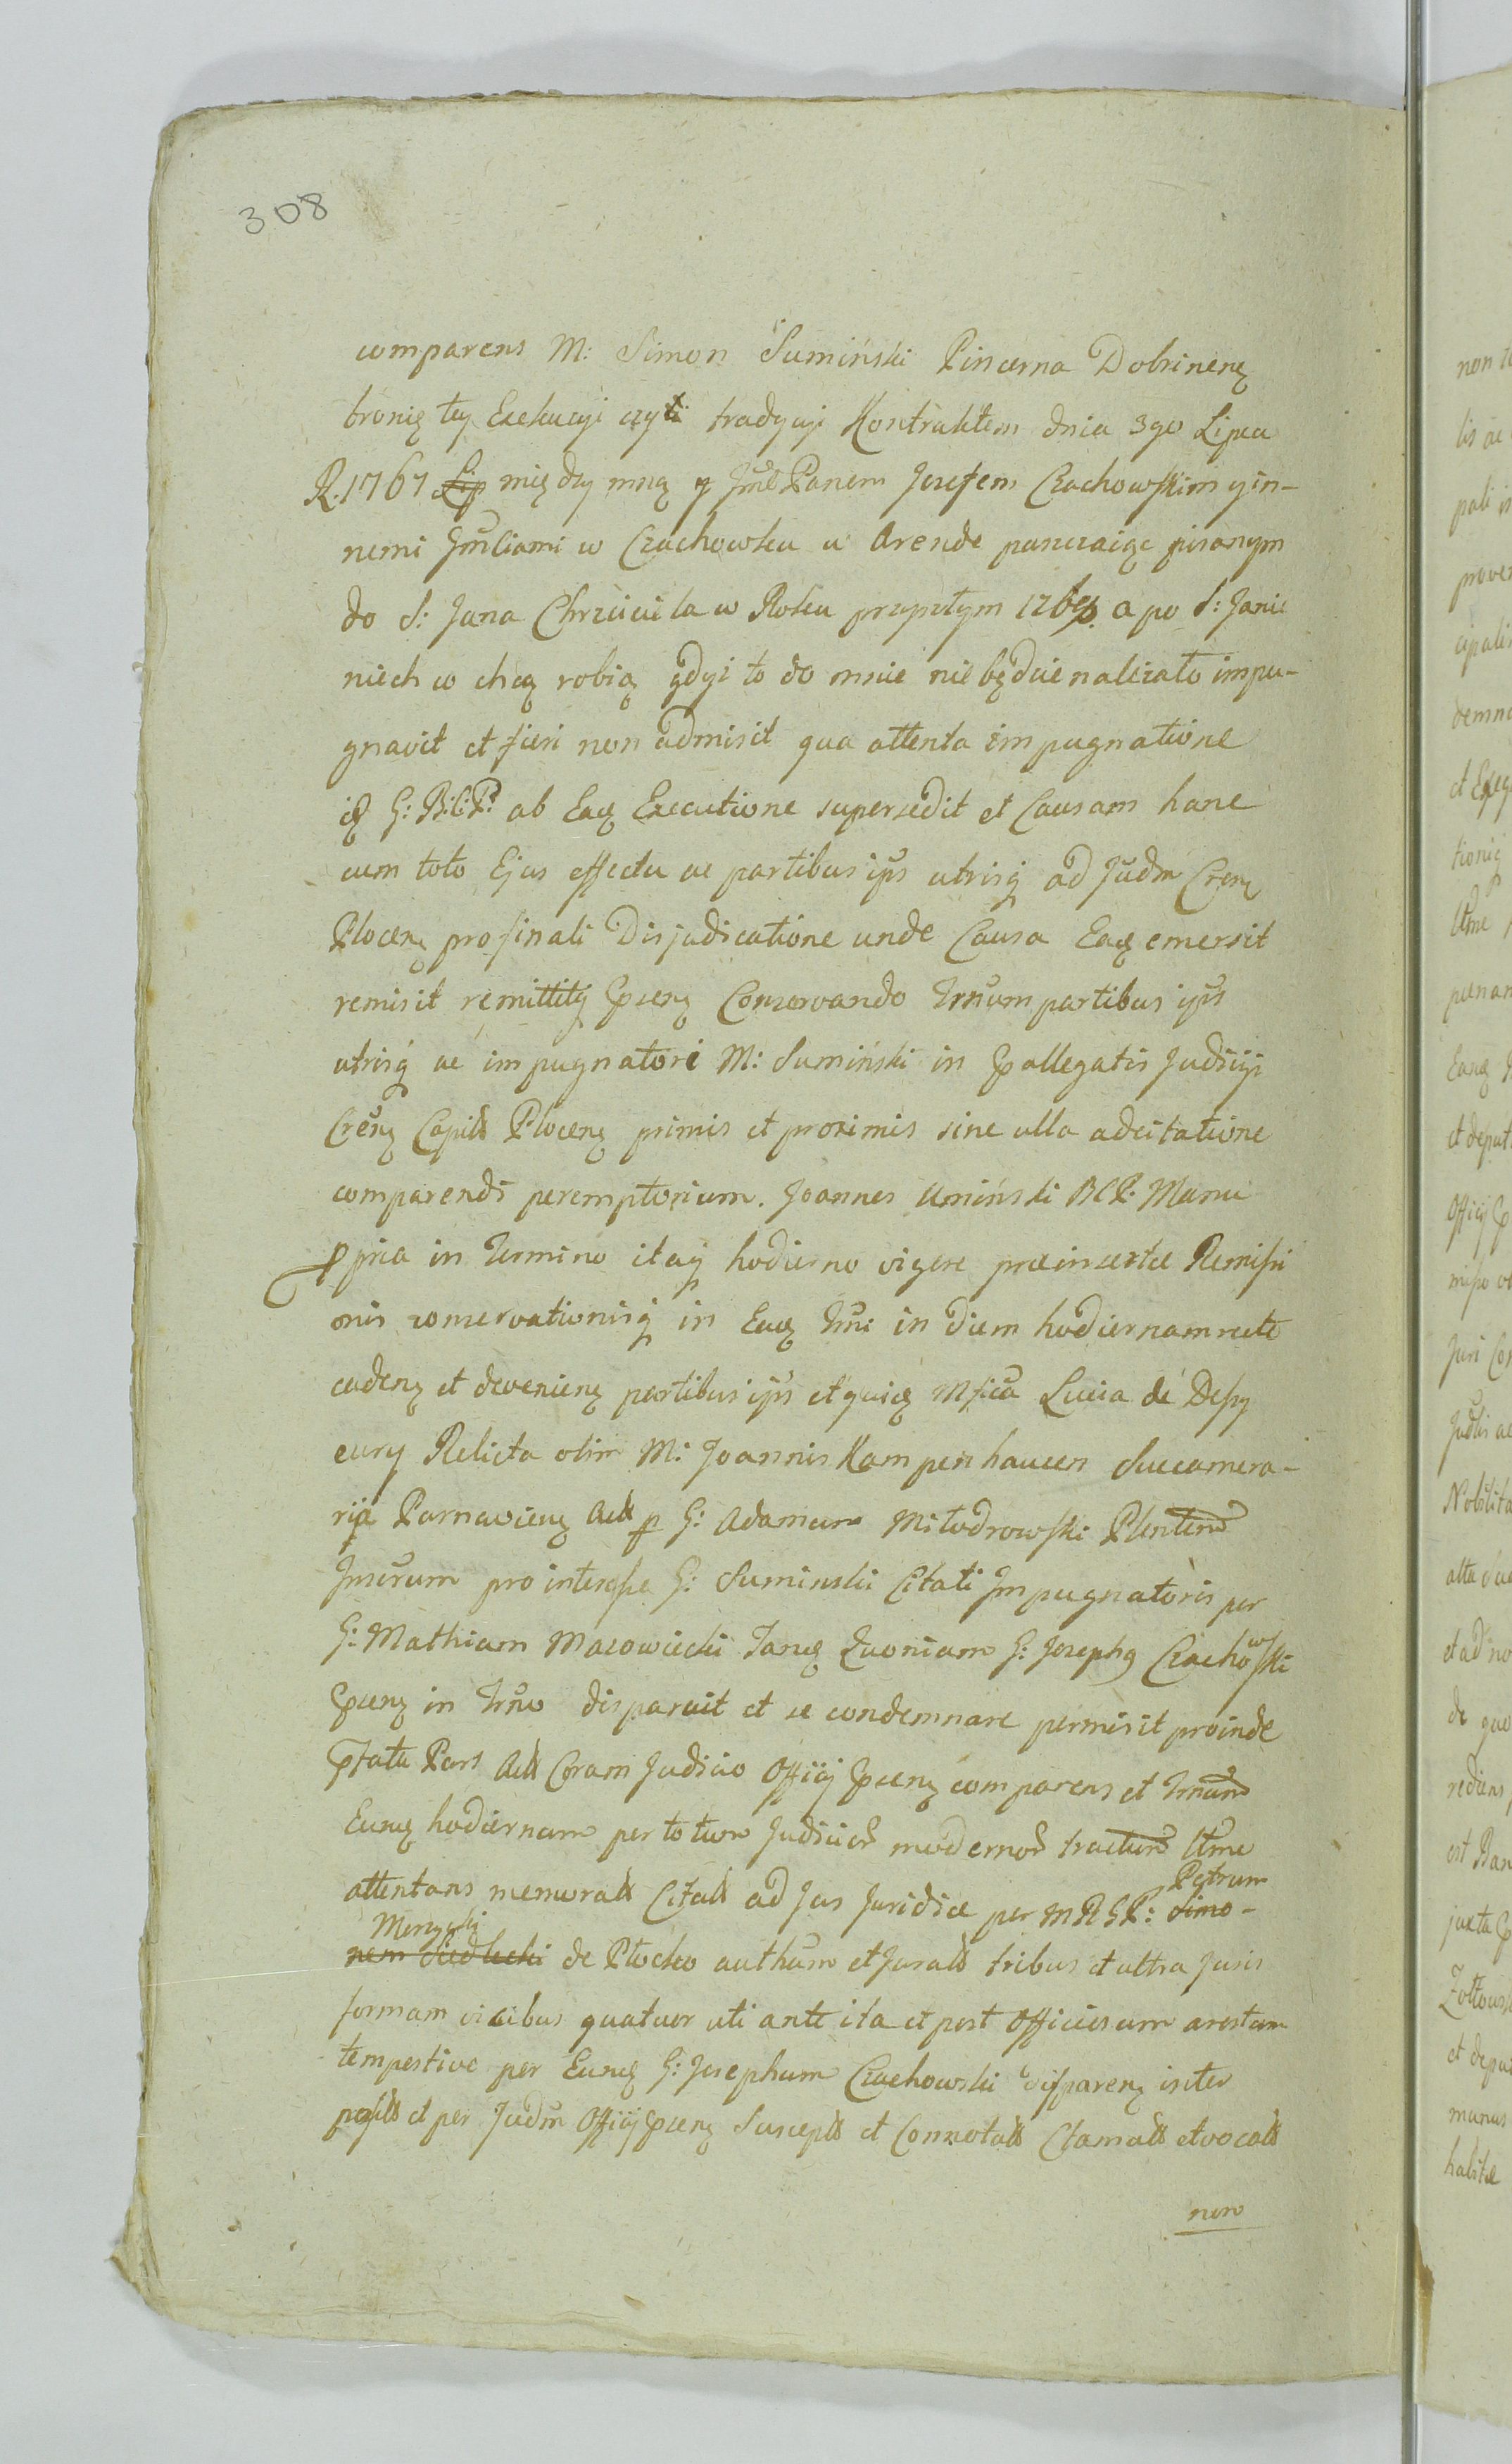 308
comparens M: Simon Sumiński Pincerna Dobrinenꝫ
bronię tey Exekucyi czyli tradycyi Kontraktem dnia 3go Lipca
R. 1767 Lip między mną y Jmć Panem Jozefem Czachowskim y in-
nemi Jmciami w Czachowsku w Arende puszczaiąc pisanym
do S: Jana Chrzciciela w Roku przyszłym 1769. a po S: Janie
niech co chcą robią gdyż to do mnie nie będzie należało impu-
gnavit et fieri non admisit qua attenta impugnatione
idꝫ G: B:C:P: ab Eaꝫ Executione supersedit et Causam hanc
cum toto Ejus effectu ac partibus ipīs utrisq ad Judm̄ Cren̄ꝫ
Plocenꝫ pro finali Disjudicatione unde Causa Eaꝫ emersit
remisit remittitq pn̄senꝫ Conservando Trn̄um partibus ipīs
utrisq ac impugnatori M: Sumiński in pallegatis Judicijs
Cren̄ꝫ Capitłł Plocenꝫ primis et proximis sine ulla adcitatione
comparendi peremptorium. Joannes Umiński BCP. Manu
ppria in Termino itaq hodierno vigore præinsertæ Remissi
onis conservationisq in Eaꝫ Trn̄i in diem hodiernam recte
cadenꝫ et devenienꝫ partibus ipīs utquiꝫ Mfica Lucia de Depy
cury Relicta olim M: Joannis Kampenhausen Succamera-
rij Parnaviensꝫ Actł p G: Adamum Miłodrowski Plentem
Jnserum pro interesse G: Suminski Citati Jmpugnatoris per
G: Mathiam Mazowiecki Tanꝫ Quoniam G: Josephꝯ Czachowski
pn̄senꝫ in Trn̄o disparuit et se condemnare permisit proinde
pfata Pars Actł Coram Judicio Officij pn̄senꝫ comparens et Trn̄um
Eunꝫ hodiernum per totum Judicior̄ modernor̄ tractum Ltme
attentans memoratł Citatł ad Jus Juridice per MRGP: Simo- Petrum
nem Siedlecki Merzycki de Płocko authūm et Juratł tribus et ultra Juris
formam vicibus quatuor uti ante ita et post Officiosum arestum
tempestive per Eunꝫ G: Josephum Czachowski disparenꝫ inter
positł et per Judm̄ Officij pn̄senꝫ Susceptł et Connotatł Clamatł et vocatł
non